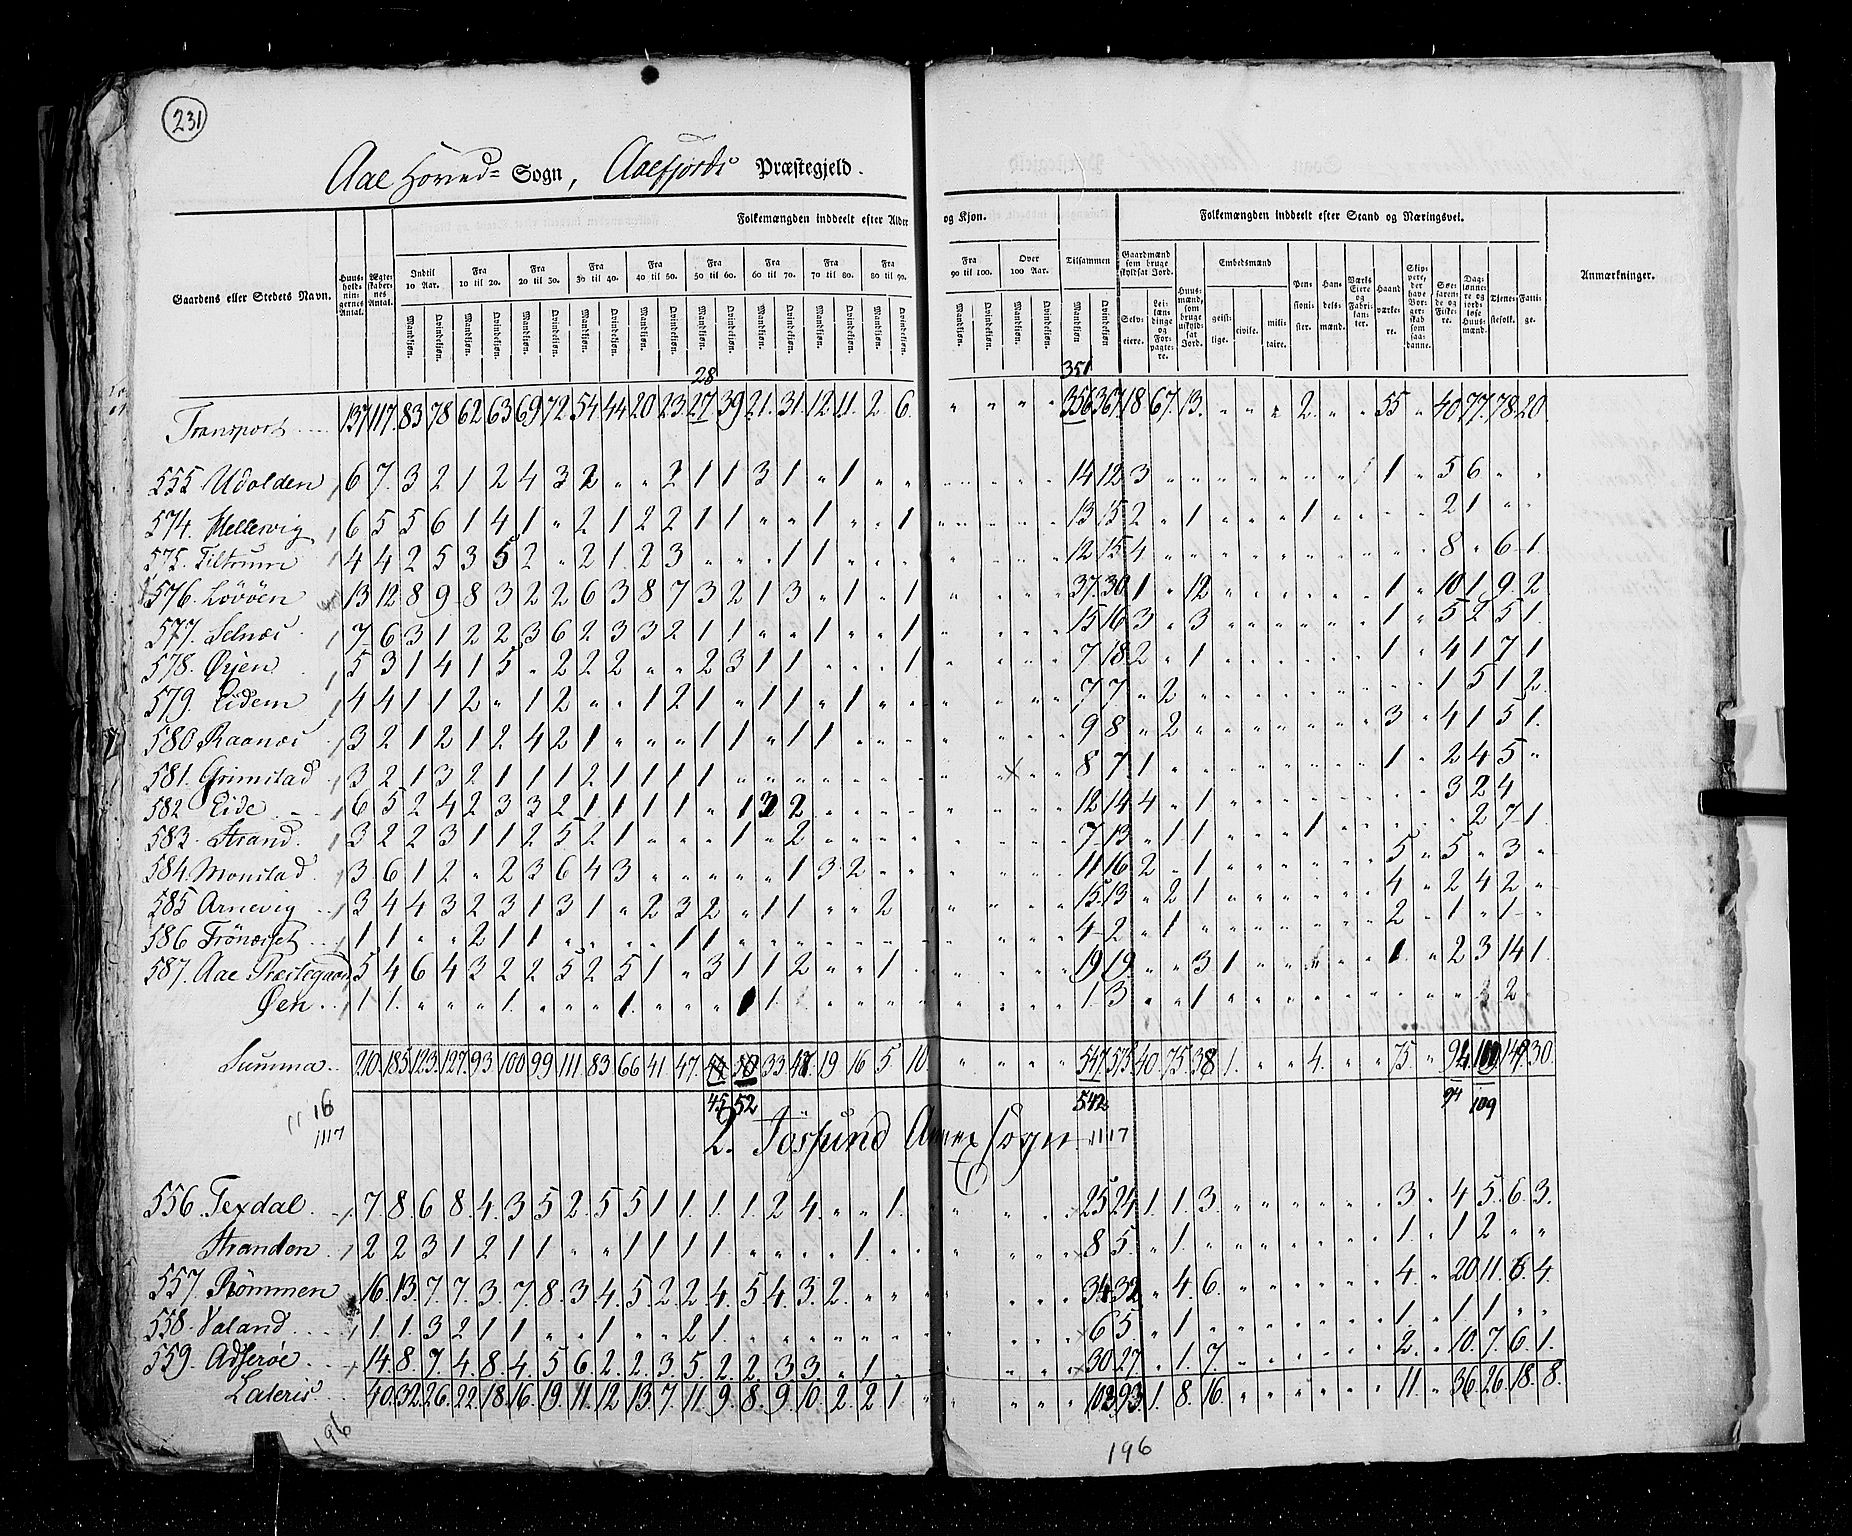 231
Aae Hoved= Sogn, Aaefjords Præstegjeld.
Gaardens eller Stedets Navn. Huus-holdningernes Antal. Ægteskabernes Antal. Folkemængden inddeelt efter Alder og Kjøn. Tilsammen Folkemængden inddeelt efter Stand og Næringsvei. Anmærkninger.
Indtil 10 Aar. Fra 10 til 20. Fra 20 til 30. Fra 30 til 40. Fra 40 til 50. Fra 50 til 60. Fra 60 til 70. Fra 70 til 80. Fra 80 til 90. Fra 90 til 100. Over 100 Aar.
28 351
Transport 137 117. 83 78 62 63 69 72 54 44 20 23 27 39 21. 31. 12 11. 2 6. " " " " 356 367 18 67. 13. " " " 2. " " 55 " 40 77. 78. 20.
555 Udolden 6 7. 3 2 1 2 4 3 2 " " 2 1 1 3 1 " 1 " " " " " " 14 12 3 " " " " " " " " 1 " 5 6 " "
574. Mellervig 6 5 5 6 1 4 1 " 2 1 2 2 1 1 " " 1 " " 1 " " " " 13 15 2 " 1 " " " 1 " " " " 2 1 " "
575. Tiltrum 4 4 2 5 3 5 2 " 2 1. 2 3 " " " 1 1 " " " " " " " 12 15 4 " " " " " " " " " " 8 " 6 1.
576. Lövöen 13 12 8 9 8 3 2 2 6 3 8 7 3 2 1 3 " 1 " 1 " " " " 37. 30 1 " 12 " " " " " " 1 " 10 1 9. 2
577. Selnæs 7 6 3 1 2 2 3 6 2 3 3 2 1 1 " " 1 " " 1 " " " " 15 16 3 " 3 " " " " " " 1 " 5 2 5 1.
578. Øyen 5 3 1 4 1 5 " 2 2 2 " " 2 3 1 1 " " " 1 " " " " 7 18 2 " 1 " " " " " " 1 " 4 1 7 1
579. Eidem 4 4 1 1 2 " 1 2 " " 1 2 1 " 1 1 " 1 " " " " " " 7 7 " 2 " " " " " " " " " 1 5 1 2
580 Raanæs 3 2 1 2 1 2 4 2 1 " " " 1 1 " 1 1 " " " " " " " 9 8 " 2 " " " " " " " 3 " 4 1 5 1.
581. Grimstad 3 2 1 3 2 1 1 1 2 1 1 1 1 " " " " " " " " " " " 8 7 1 " " " " " " " " 1 " 2 4 5 "
582 Eide 6 5 2 4 2 3 3 2 1 1 1 1 " 1 3 2 " " " " " " " " 12 14 4 " 1 " " " " " " " " 3 2 4
583. Strand. 3 2 2 3 1 1 2 5 2 1 " " " 1 " 2 " " " " " " " " 7 13 " 1 1 " " " 1 " " " " " 2 7 1
584. Monstad 3 6 1 2 " 2 3 6 4 3 " " " " " 1 3 2 " " " " " " 11 16 2 " 1 " " " " " " 5 " 5 " 3 "
585 Arnevig 3 4 4 3 2 3 1 3 1 " 2 3 2 " 1 1 " " 2 " " " " " 15 13 " 2 1 " " " " " " 4 " 2 4 2 "
586 Trönæset 1 1 " " 2 1 1 " " " " 1 1 " " " " " " " " " " " 4 2 " " 1 " " " " " " 2 " 1 " 1 "
587. Aae Præstegaard 5 4 6 4 3 2 2 5 2 5 1 " 3 1 1 2 " " 1 " " " " " 19 19 " " 3 1 " " " " " 1. " 2 3 14 1.
Øen 1 1. " " " 1. " " " 1. " " " 1 1. " " " " " " " " 1 3 " " 1 " " " " " " " " " " 2
Summa 210. 185. 123. 127. 93 100 99 111. 83 66 41 47. 33 19 16 5 10. " " " " 547. 573 40 75. 38 1. " " 4. " " 75 " 94 30.
45 52 542 94 109
11 16
1117
2. Jössund Annex Sogn 1117
556. Texdal 7. 8. 6 8. 4. 3 5 2. 5 5 1 1. 1. 1. 2 4. " " 1. " " " " 25 24 1. 1. 3. " " " " " " 3 " 4 5. 6. 3.
Stranden 2 2 3 1 2 1 1 " " 1 1 1 1 " " " " 1. " " " " " " 8 5. " 1. " " " " " " " 1. " 1 2 " "
557. Römmen 16. 13. 7. 7. 3. 7. 8. 3 4. 5 2 2 4. 5 4. 3. 2. " " " " " " " 34 32 " 4. 6. " " " " " " 4. " 20 11. 6. 4.
558. Valand 1. 1. 3 2 1 1 " " 1 " " 2 1. " " " " " " " " " " " 6 5. " 1 " " " " " " " 1. " 1 1. " "
559. Adserøe 14. 8. 7. 4. 8. 4. 5 6. 2. 2. 3. 5. 2. 2. 3 3. " 1. " " " " " " 30. 27. " 1. 7. " " " " " " 2. " 10. 7. 6. 1.
Lateris 40. 32. 26. 22. 18. 16. 19. 11. 12 13. 7. 11. 9. 8. 9. 10. 2. 2 1 " " " " " 103. 93. 1. 8. 16. " " " " " " 11. " 36. 26. 18. 8.
196
196